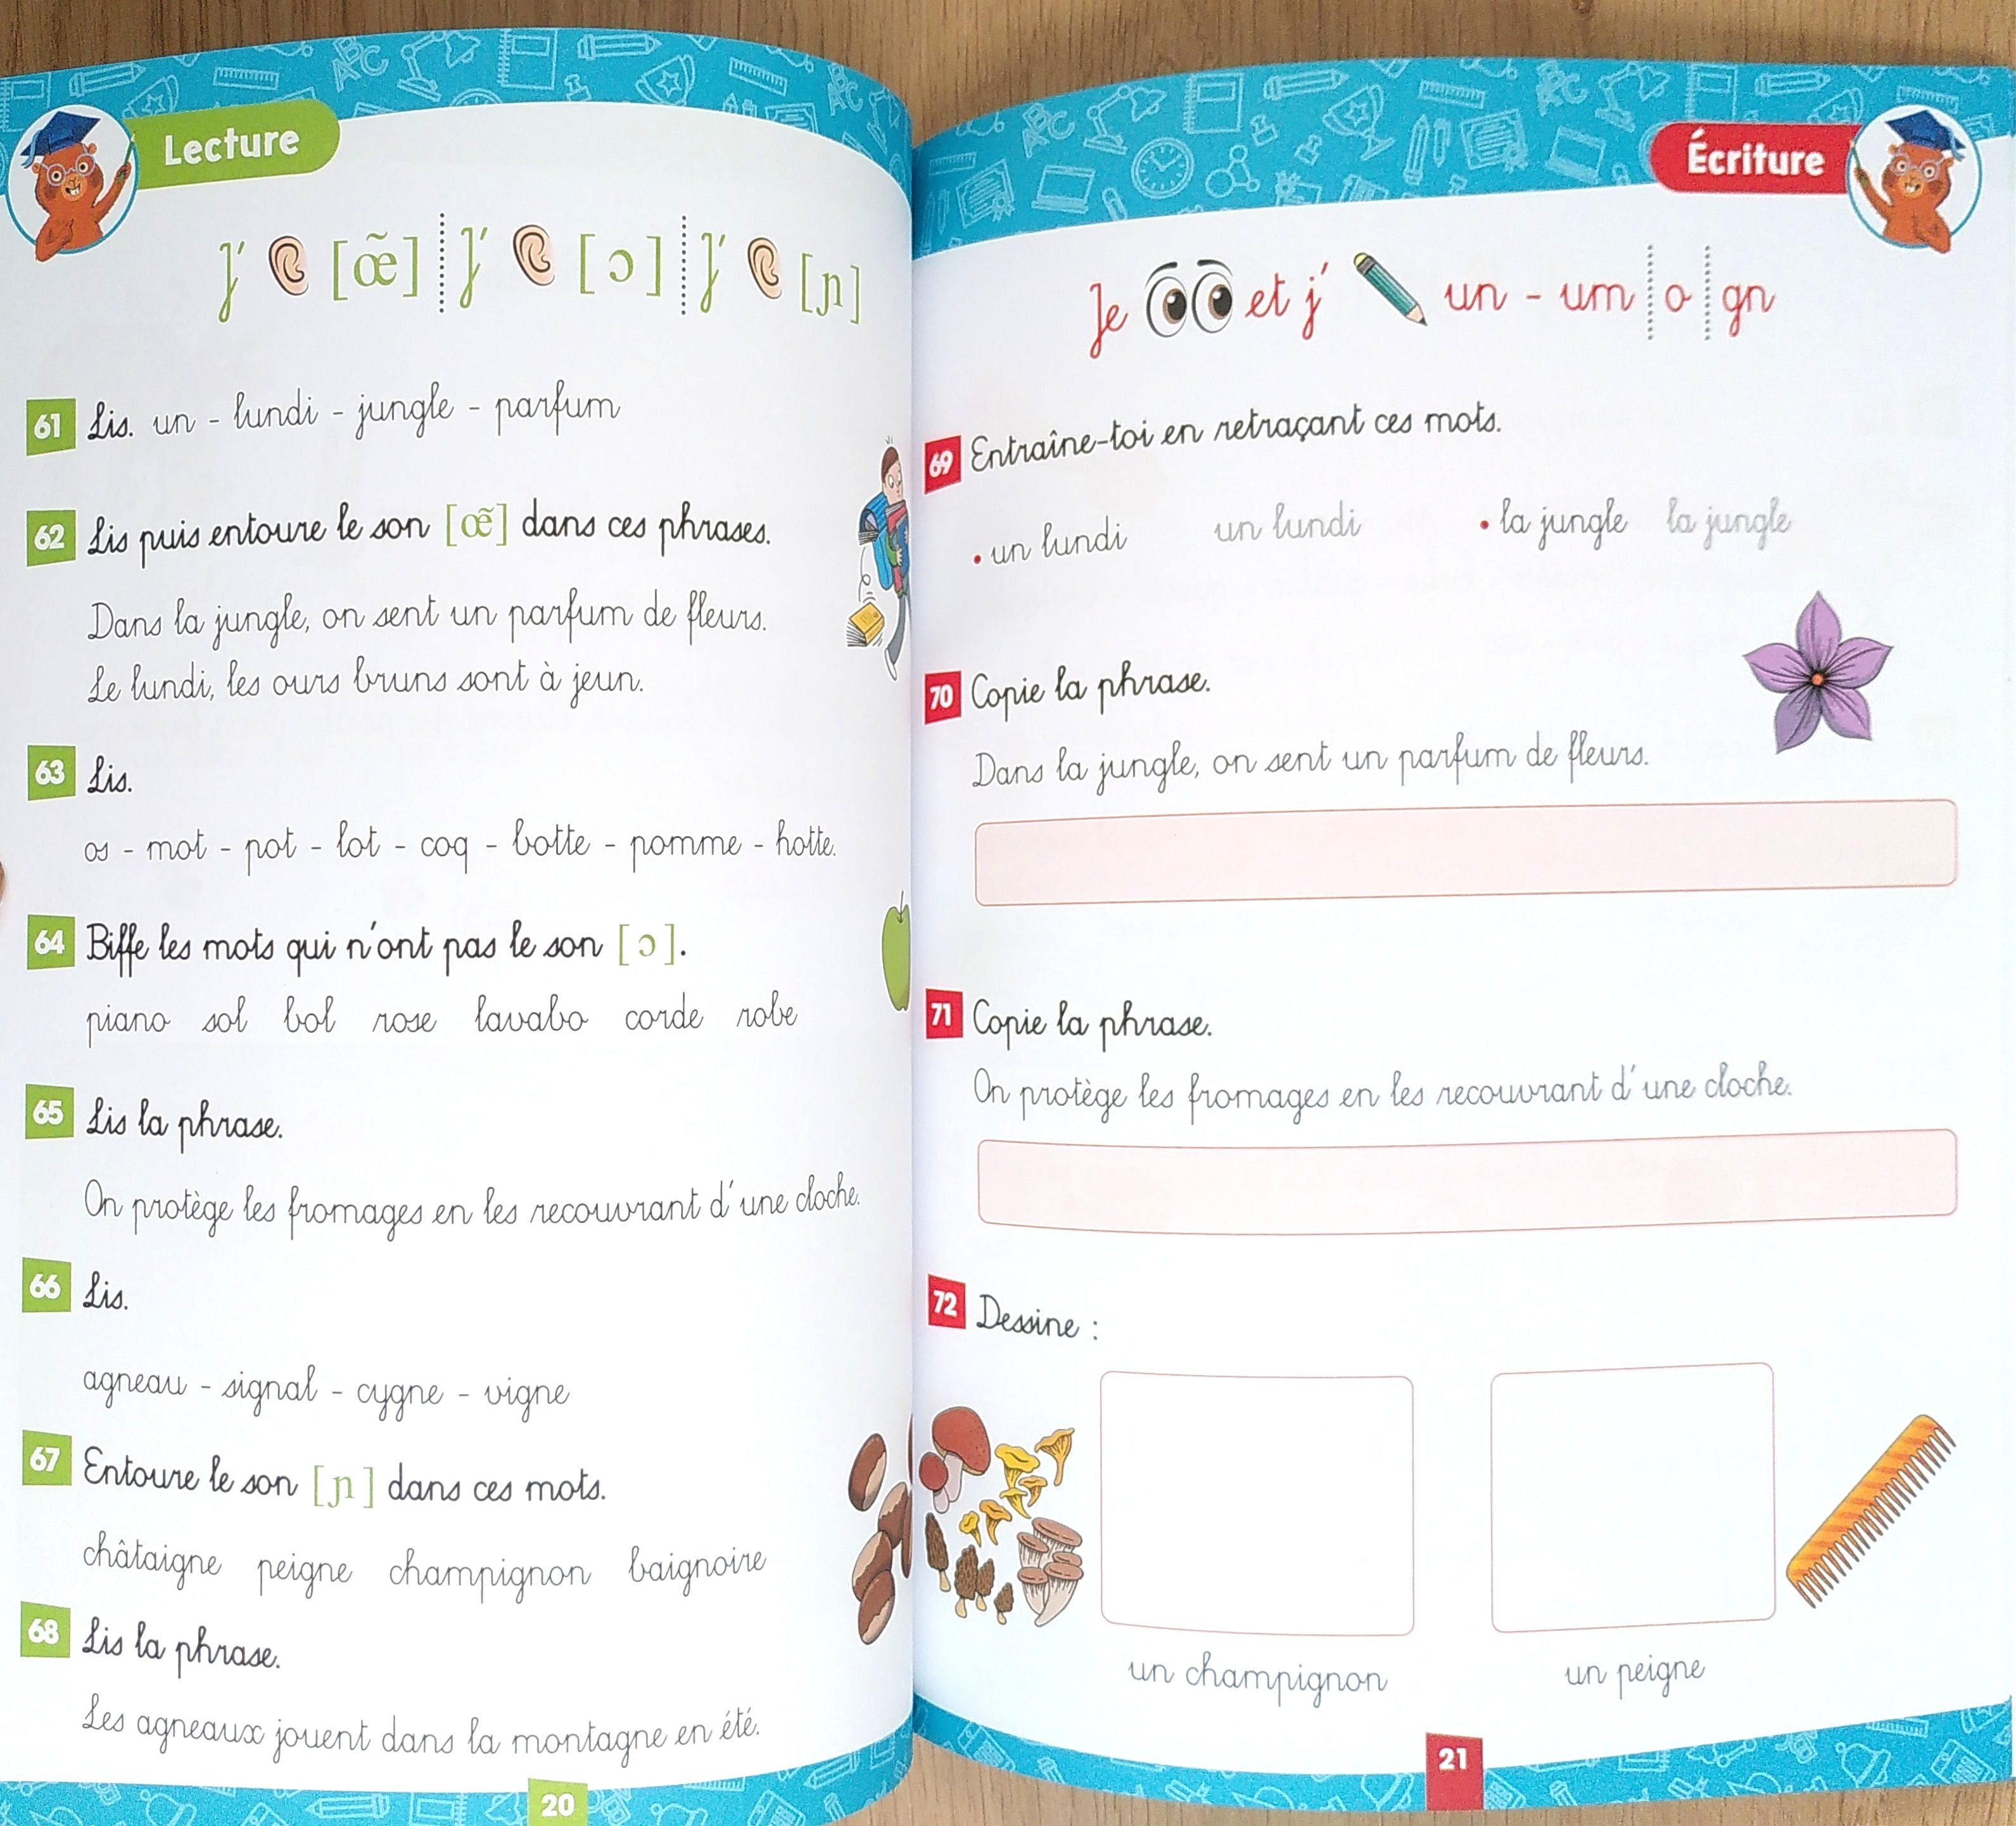 Lecture
j' [œ̃] j' [ɔ] j' [ɲ]
61 Lis. un - lundi - jungle - parfum
62 Lis puis entoure le son [œ̃] dans ces phrases.
Dans la jungle, on sent un parfum de fleurs.
Le lundi, les ours bruns sont à jeun.
63 Lis.
os - mot - pot - lot - coq - botte - pomme - hotte.
64 Biffe les mots qui n'ont pas le son [ɔ].
piano sol bol rose lavabo corde robe
65 Lis la phrase.
On protège les fromages en les recouvrant d'une cloche.
66 Lis.
agneau - signal - cygne - vigne
67 Entoure le son [ɲ] dans ces mots.
châtaigne peigne champignon baignoire
68 Lis la phrase.
Les agneaux jouent dans la montagne en été.
20
Écriture
Je et j' un - um o gn
69 Entraîne-toi en retraçant ces mots.
• un lundi un lundi • la jungle la jungle
70 Copie la phrase.
Dans la jungle, on sent un parfum de fleurs.
71 Copie la phrase.
On protège les fromages en les recouvrant d'une cloche.
72 Dessine :
un champignon un peigne
21